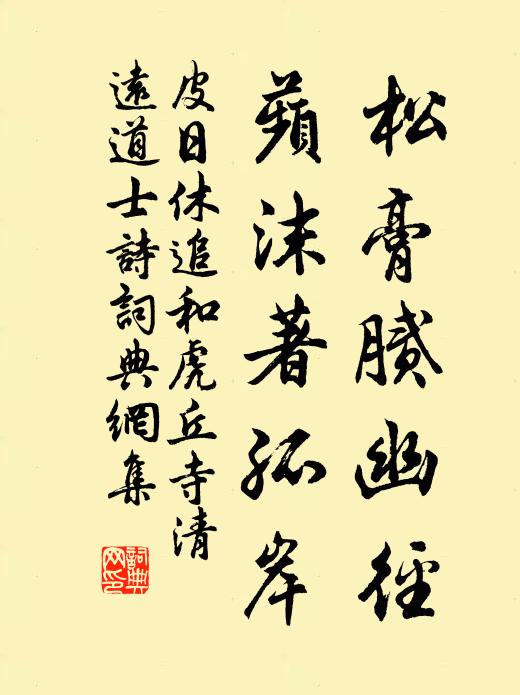 松膏膩幽徑
蘋沫著孤岸
皮日休追和虎丘寺清
遠道士詩詞典網集
詞典網印